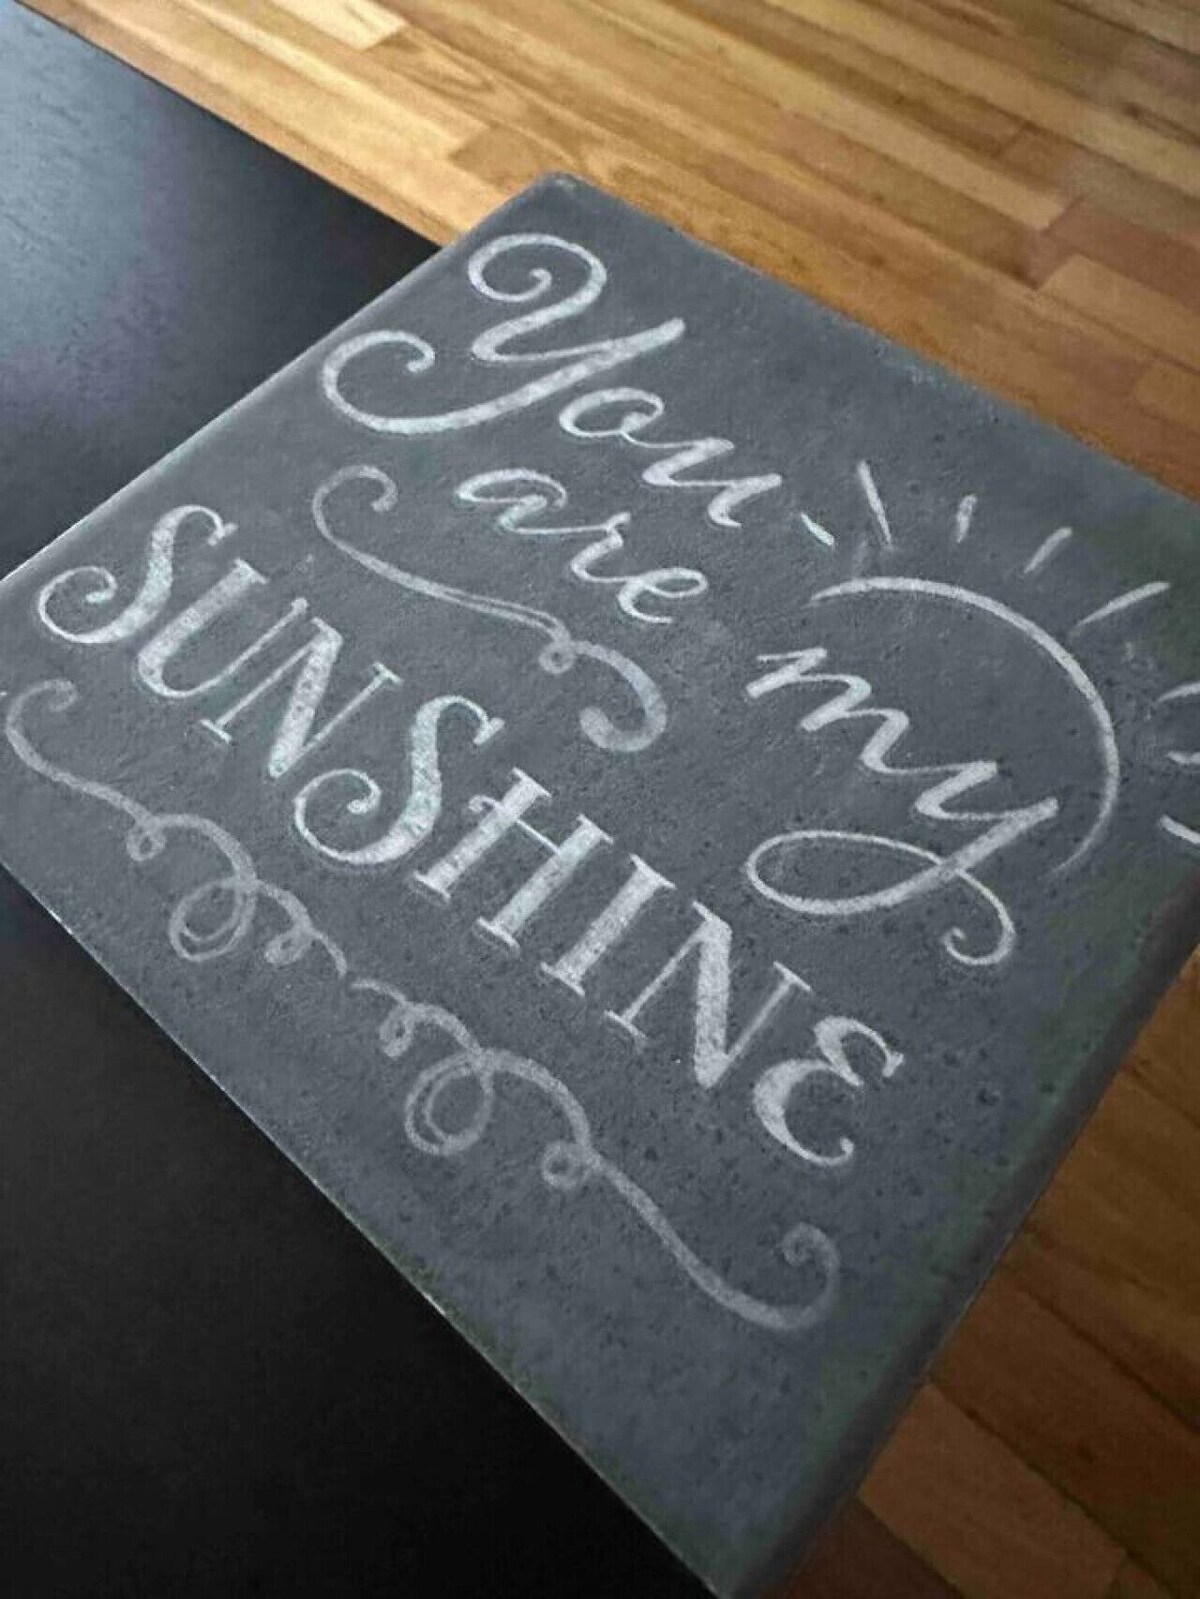 You
are my
SUNSHINE